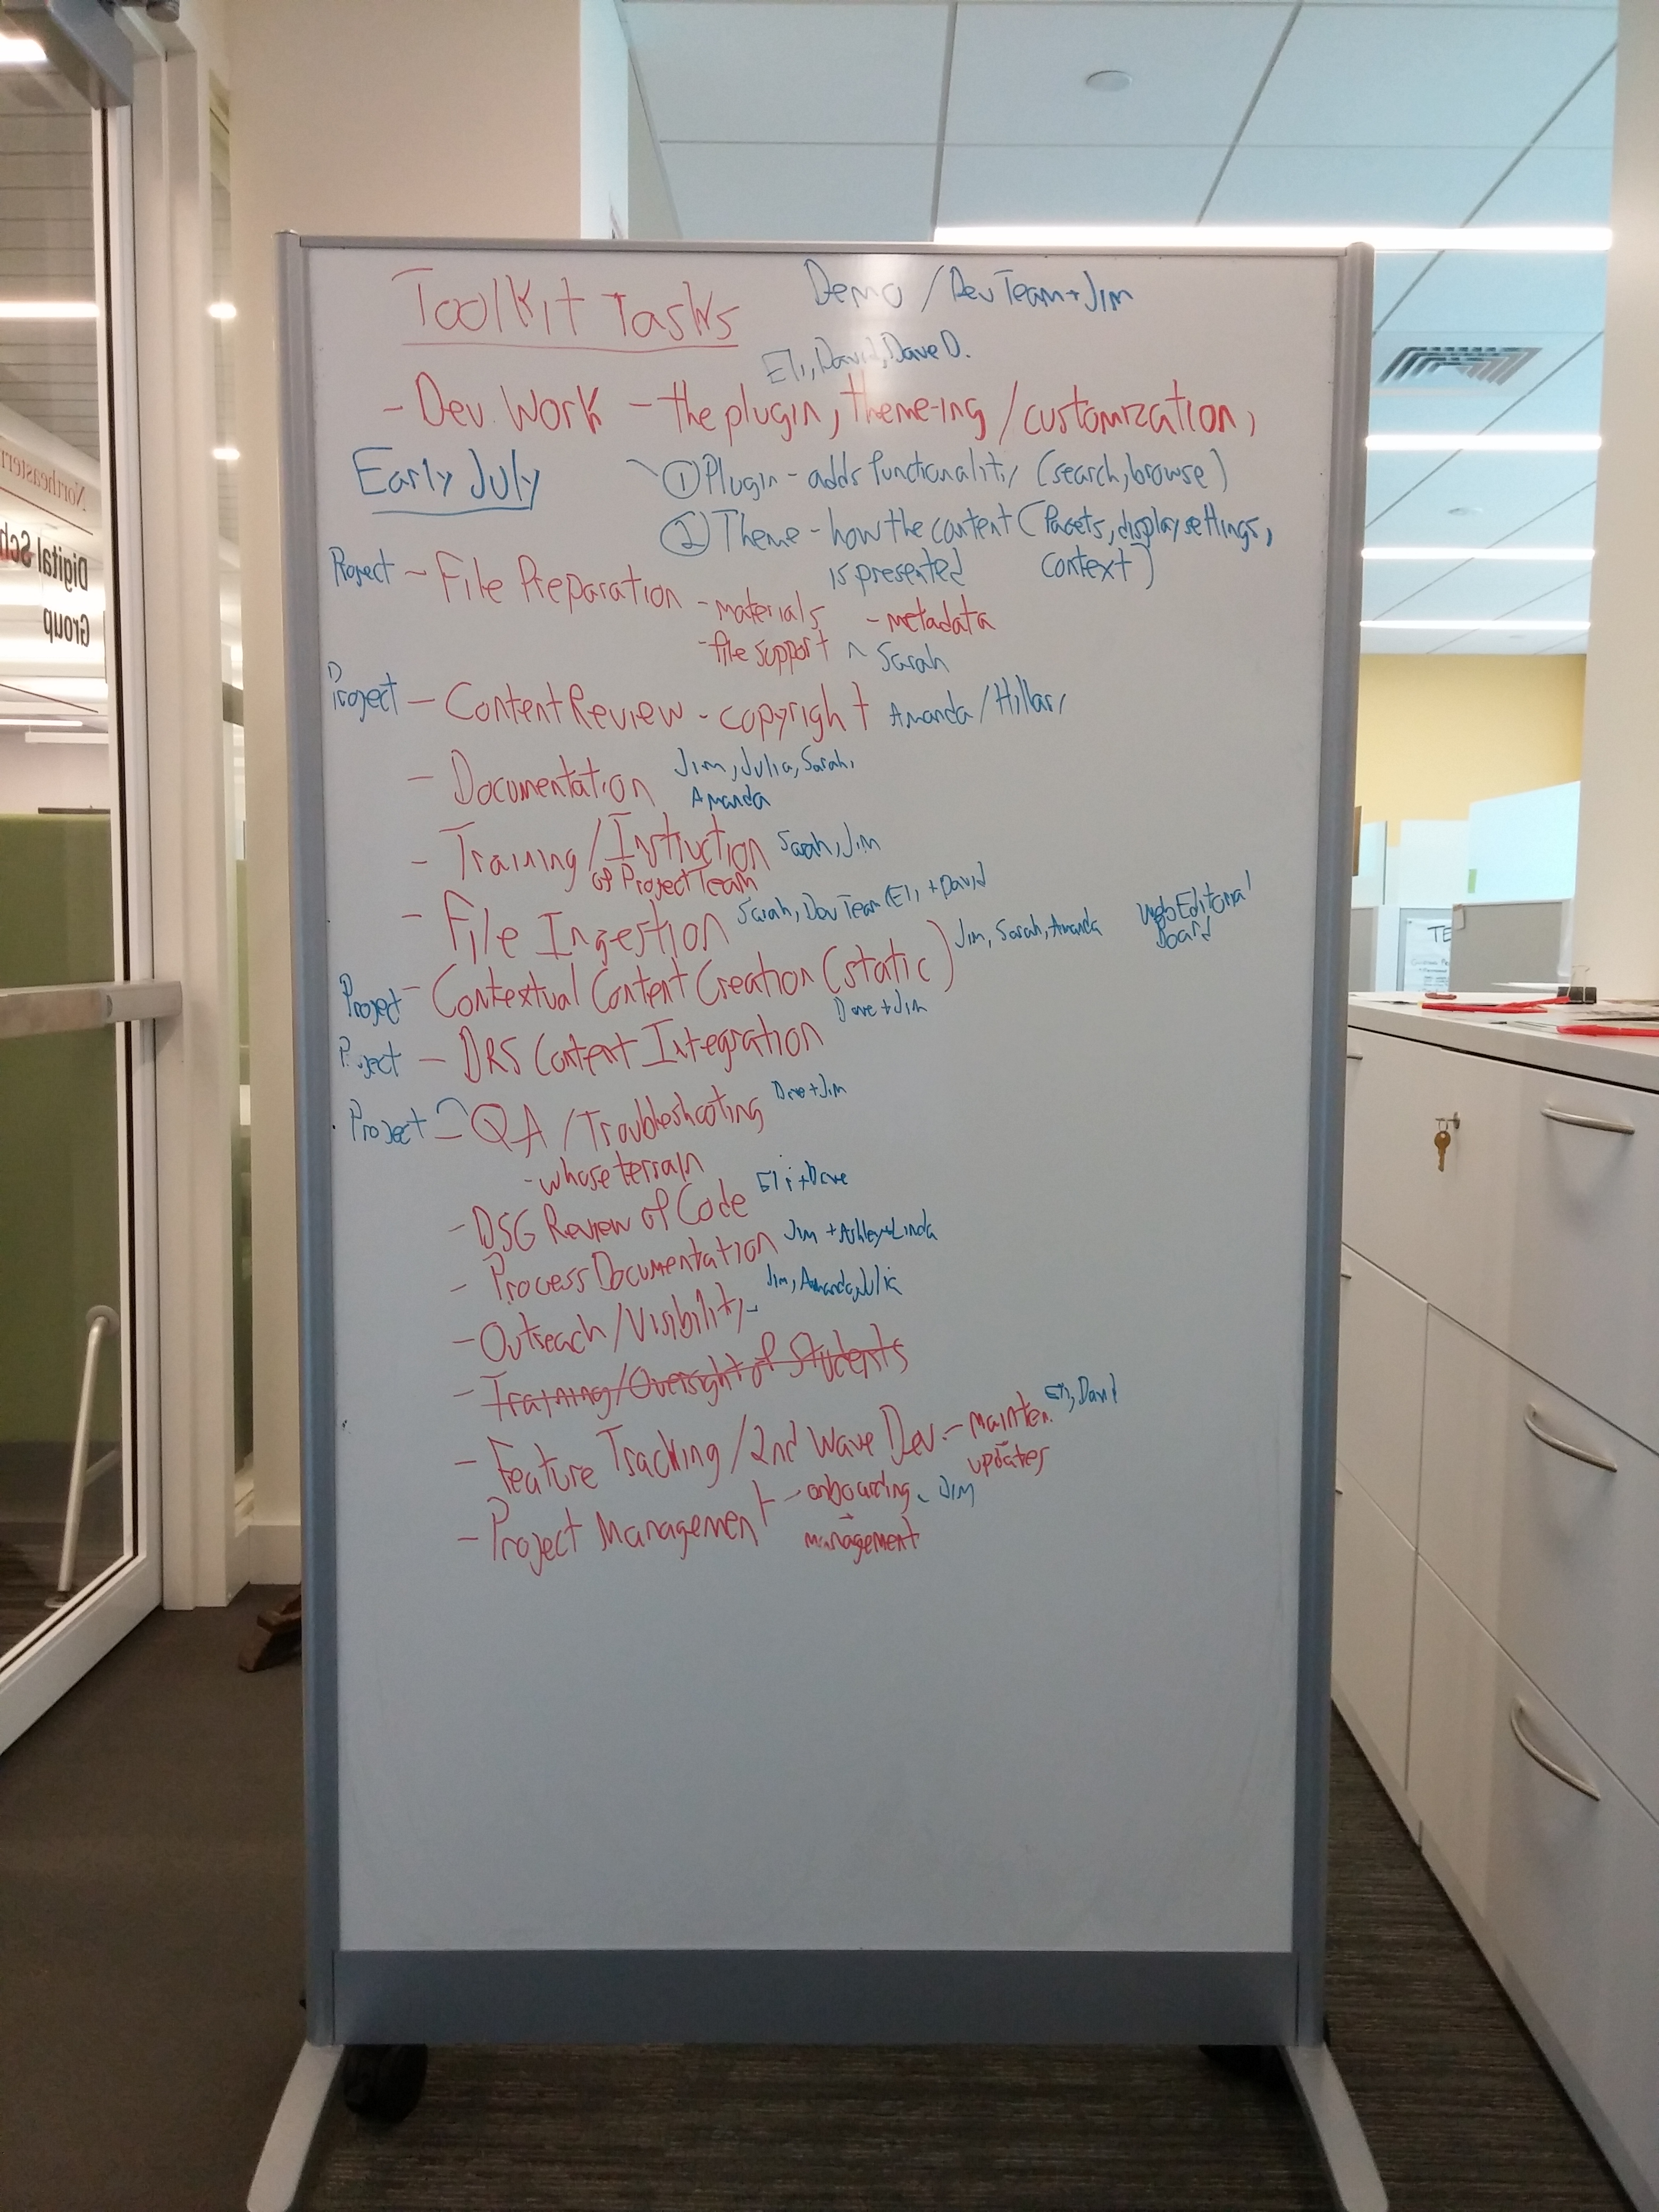 Toolkit Tasks Demo / Dev Team + Jim
Eli, David, Dave D.
- Dev. Work - the plugin, theme-ing / customization,
Early July
① Plugin - adds functionality (search, browse)
② Theme - how the content (facets, display settings,
is presented context)
Project - File Preparation - materials - metadata
- file support ^ Sarah
Project - Content Review - copyright Amanda / Hillary
- Documentation Jim, Julia, Sarah,
Amanda
- Training / Instruction Sarah, Jim
of Project Team
- File Ingestion Sarah, Dev Team (Eli + David
Project - Contextual Content Creation (static) Jim, Sarah, Amanda Web Editorial
Board
Project - DRS Content Integration Dave + Jim
Project - QA / Troubleshooting Dave + Jim
- whose terrain
- DSG Review of Code Eli + Dave
- Process Documentation Jim + Ashley + Linda
- Outreach / Visibility - Jim, Amanda, Julia
- Training/Oversight of Students
- Feature Tracking / 2nd Wave Dev. - mainten. Eli, David
updates
- Project Management - onboarding - Jim
management
Northeastern
Digital Sch
Group
TE